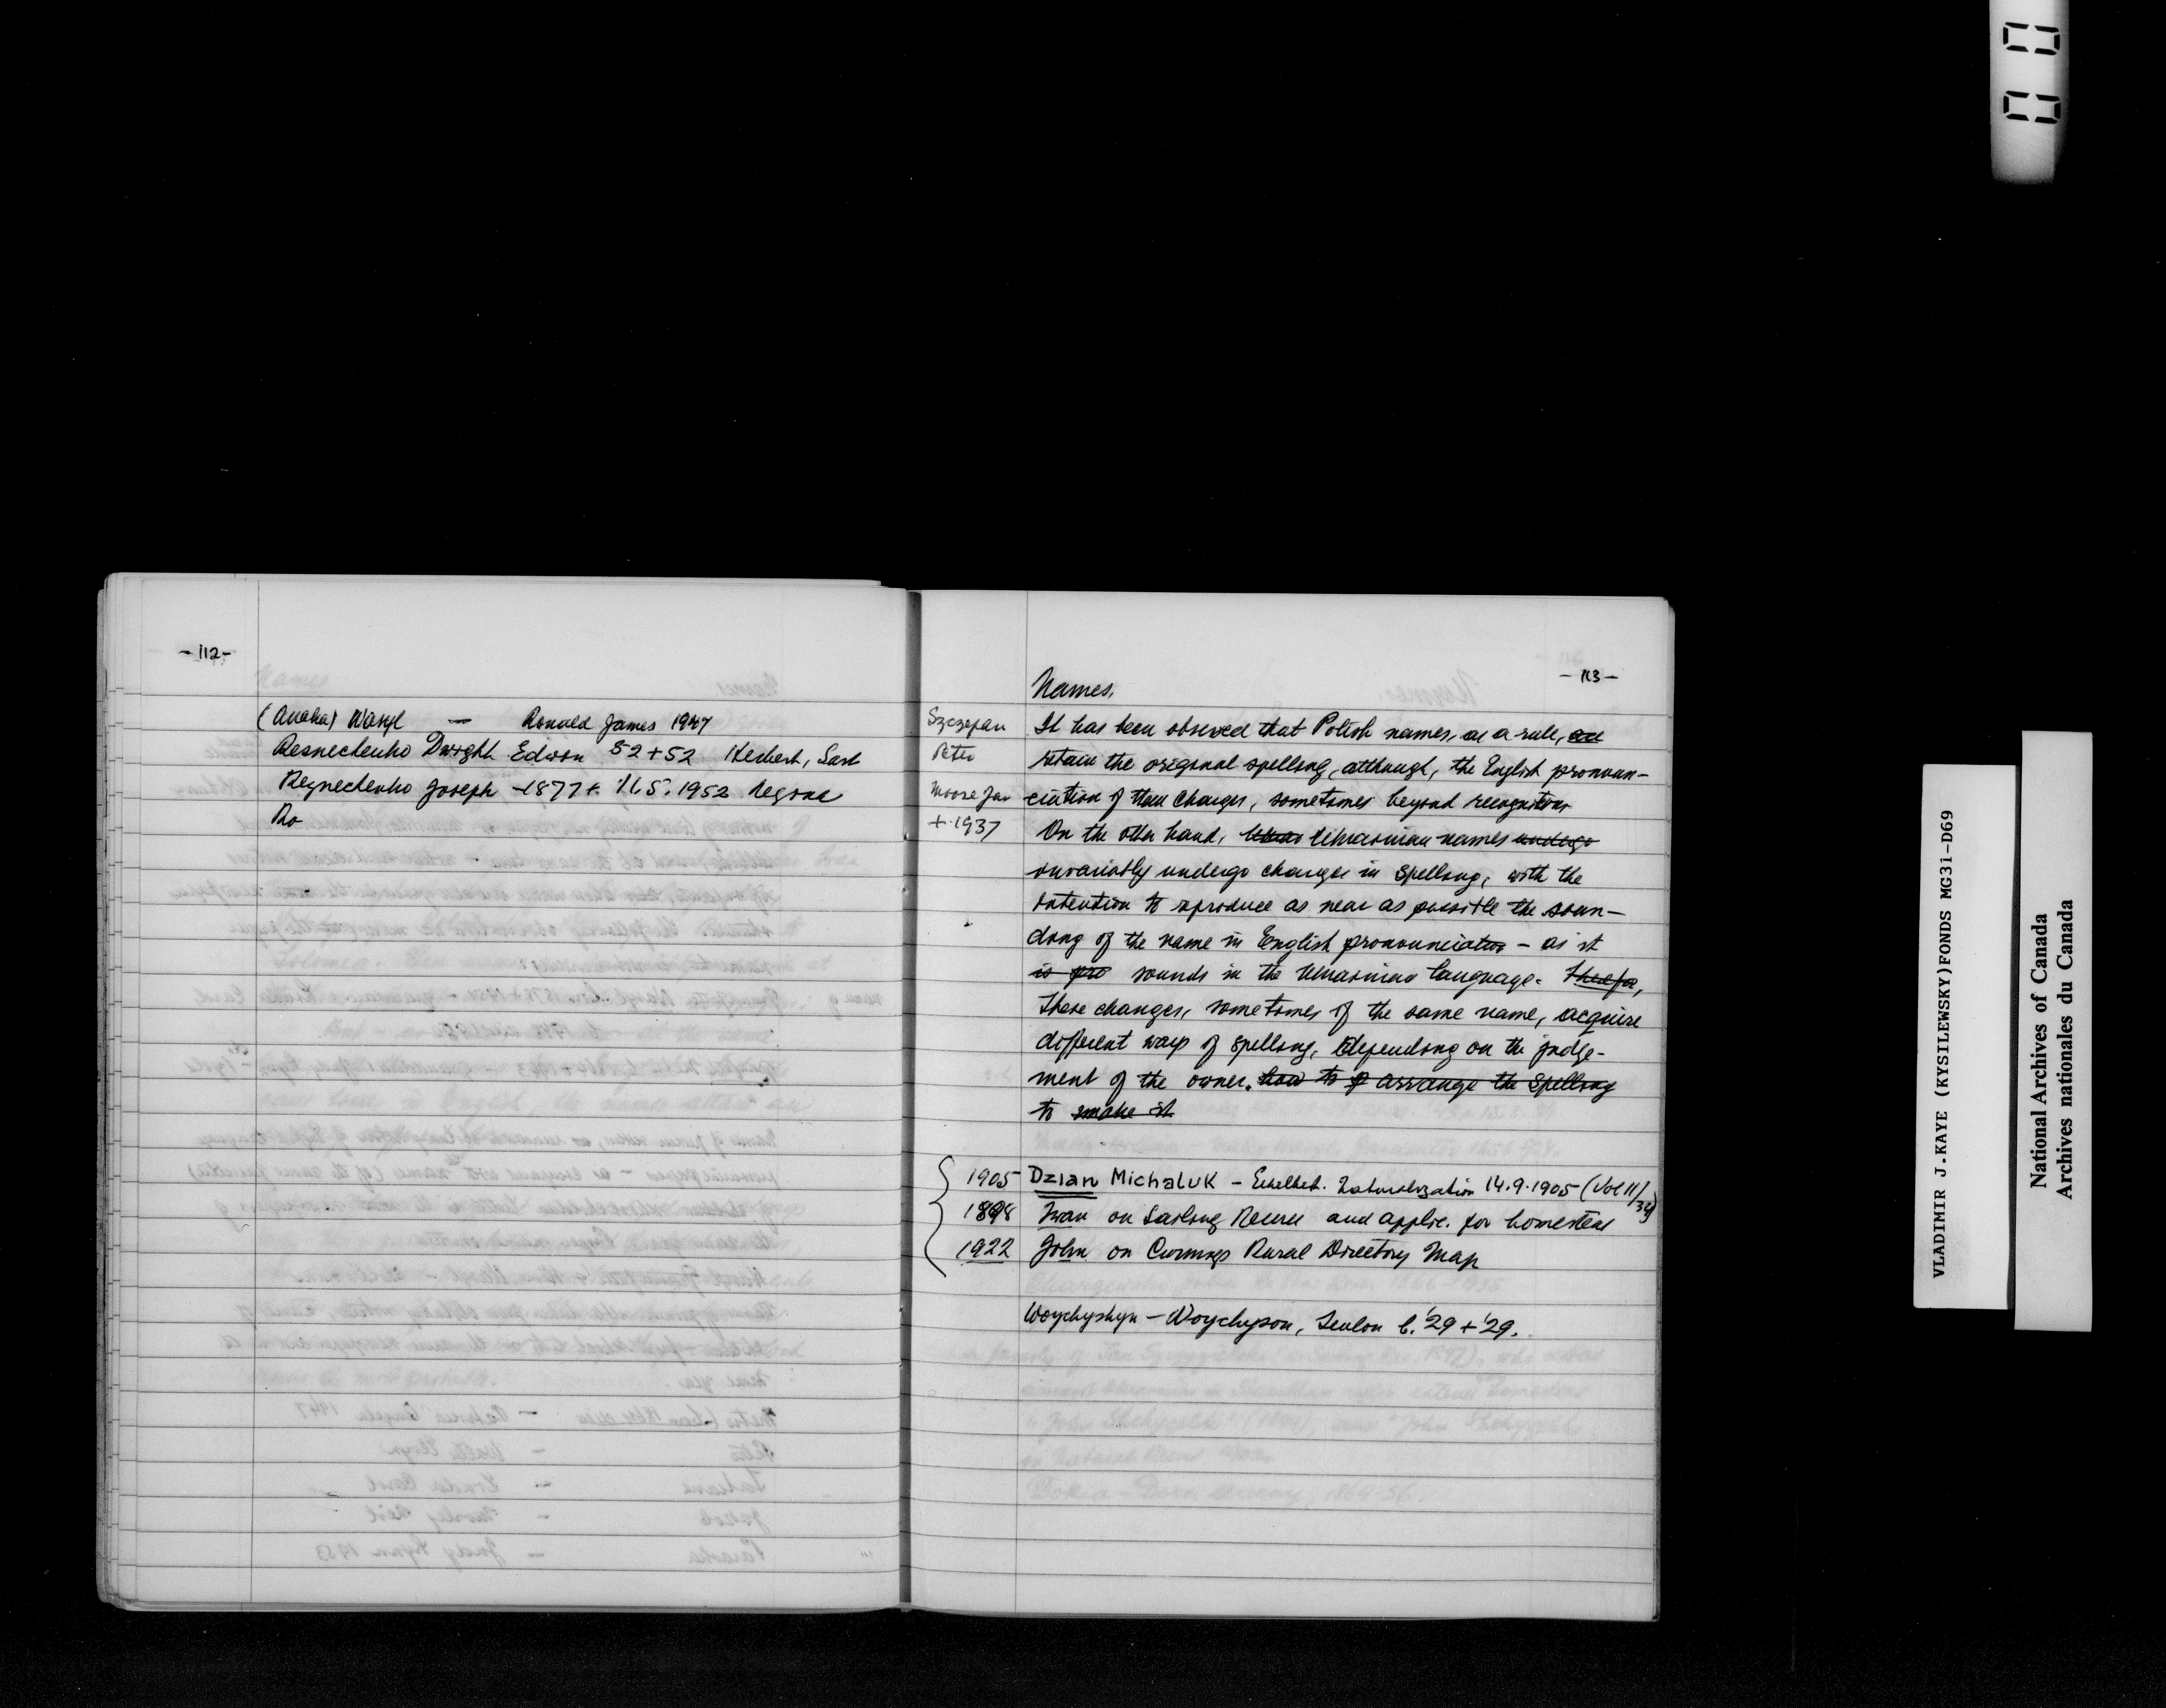 - 112 -
(Anaka) Wasyl — Ronald James 1947
Resnechenko Dwight Edwon 52 + 52 Herbert, Sask
Reznechenko Joseph -1877 + 1952 Regina
Ro
- 113 -
Names.
Szczepan
Peter
Moose Jaw
+ 1937
It has been observed that Polish names, as a rule, are
retain the original spelling, although, the English pronoun-
ciation of them changes, sometimes beyond recognition
On the other hand, Ukrainian names undergo
invariably undergo changes in spelling, with the
intention to reproduce as near as possible the soun-
ding of the name in English pronounciation - as it
is pro sounds in the Ukrainian language. Therefor,
These changes, sometimes of the same name, acquire
different ways of spelling, depending on the judge-
ment of the owner. how to arrange the spelling
to make it
1905 Dzian Michaluk - Ethelbert. Naturalization 14.9.1905 (Vol 11/34)
1898 Iwan on Sailing Record and applic. for homestead
1922 John on Cummings Rural Directory Map
Woychyshyn - Woychyson, b. '29 + '29.
VLADIMIR J.KAYE (KYSILEWSKY)FONDS MG31-D69
National Archives of Canada
Archives nationales du Canada